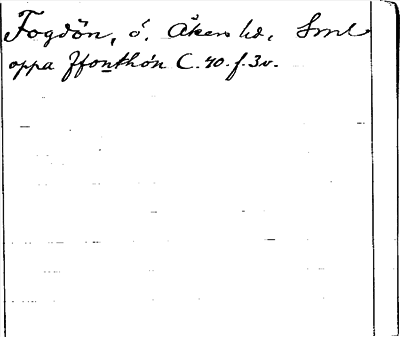 Fogdön, ö. Åkers hd, Sml
oppa ffonthön C. 40. f. 3v.